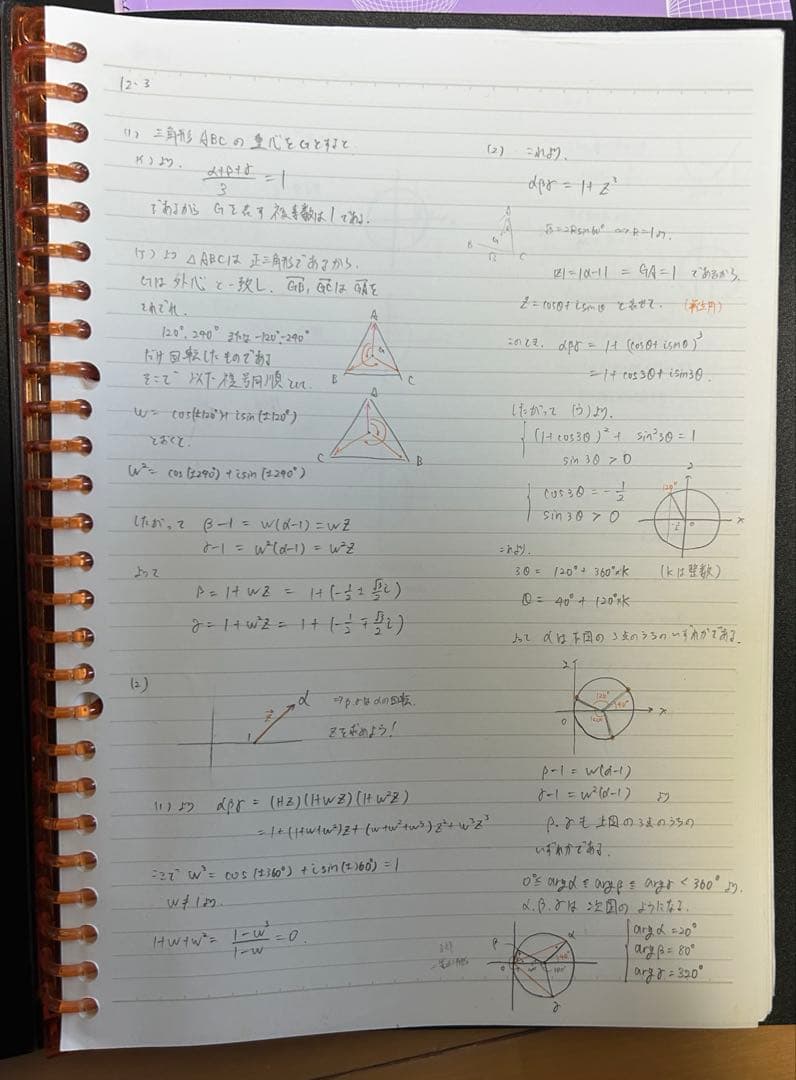 12・3
(1) 三角形ABCの重心をGとすると
(イ)より、
(α+β+γ)/3 = 1
であるから Gを表す複素数は1である。
(ア)より △ABCは正三角形であるから、
Gは外心と一致し、GB, GCは GAを
それぞれ
120°, 240° または -120°, -240°
だけ回転したものである
そこで 以下 複号同順として
A
G
B
C
A
C
B
w = cos(±120°)+ isin(±120°)
とおくと、
w² = cos(±240°) + isin(±240°)
したがって β-1 = w(α-1) = wz
γ-1 = w²(α-1) = w²z
よって
β = 1+wz = 1+(-1/2 ± √3/2 i)
γ = 1+w²z = 1+(-1/2 ∓ √3/2 i)
(2)
z
α
1
⇒β,γはαの回転、
zを求めよう!
(1)より αβγ = (1+z)(1+wz)(1+w²z)
= 1+(1+w+w²)z + (w+w²+w³)z² + w³z³
ここで w³ = cos(±360°) + isin(±360°) = 1
w≠1より
1+w+w² = (1-w³)/(1-w) = 0.
(2) これより、
αβγ = 1+z³
A
G
B
C
√3
√3=2Rsin60° ⇔ R=1より
|z|=|α-1| = GA=1 であるから、
z = cosθ+isinθ と表せて、
このとき、αβγ = 1+(cosθ+isinθ)³
= 1+cos3θ+isin3θ.
したがって (ウ)より、
(1+cos3θ)² + sin²3θ = 1
sin3θ > 0
cos3θ = -1/2
sin3θ > 0
120°
0
x
これより、
3θ = 120° + 360°×k (kは整数)
θ = 40° + 120°×k
よって αは下図の3点のうちのいずれかである。
0
x
120°
β-1 = w(α-1)
γ-1 = w²(α-1) より
β, γも上図の3点のうちの
いずれかである。
0°≦argα≦argβ≦argγ<360° より、
α, β, γは次図のようになる。
β
α
0
γ
argα=20°
argβ=80°
argγ=320°